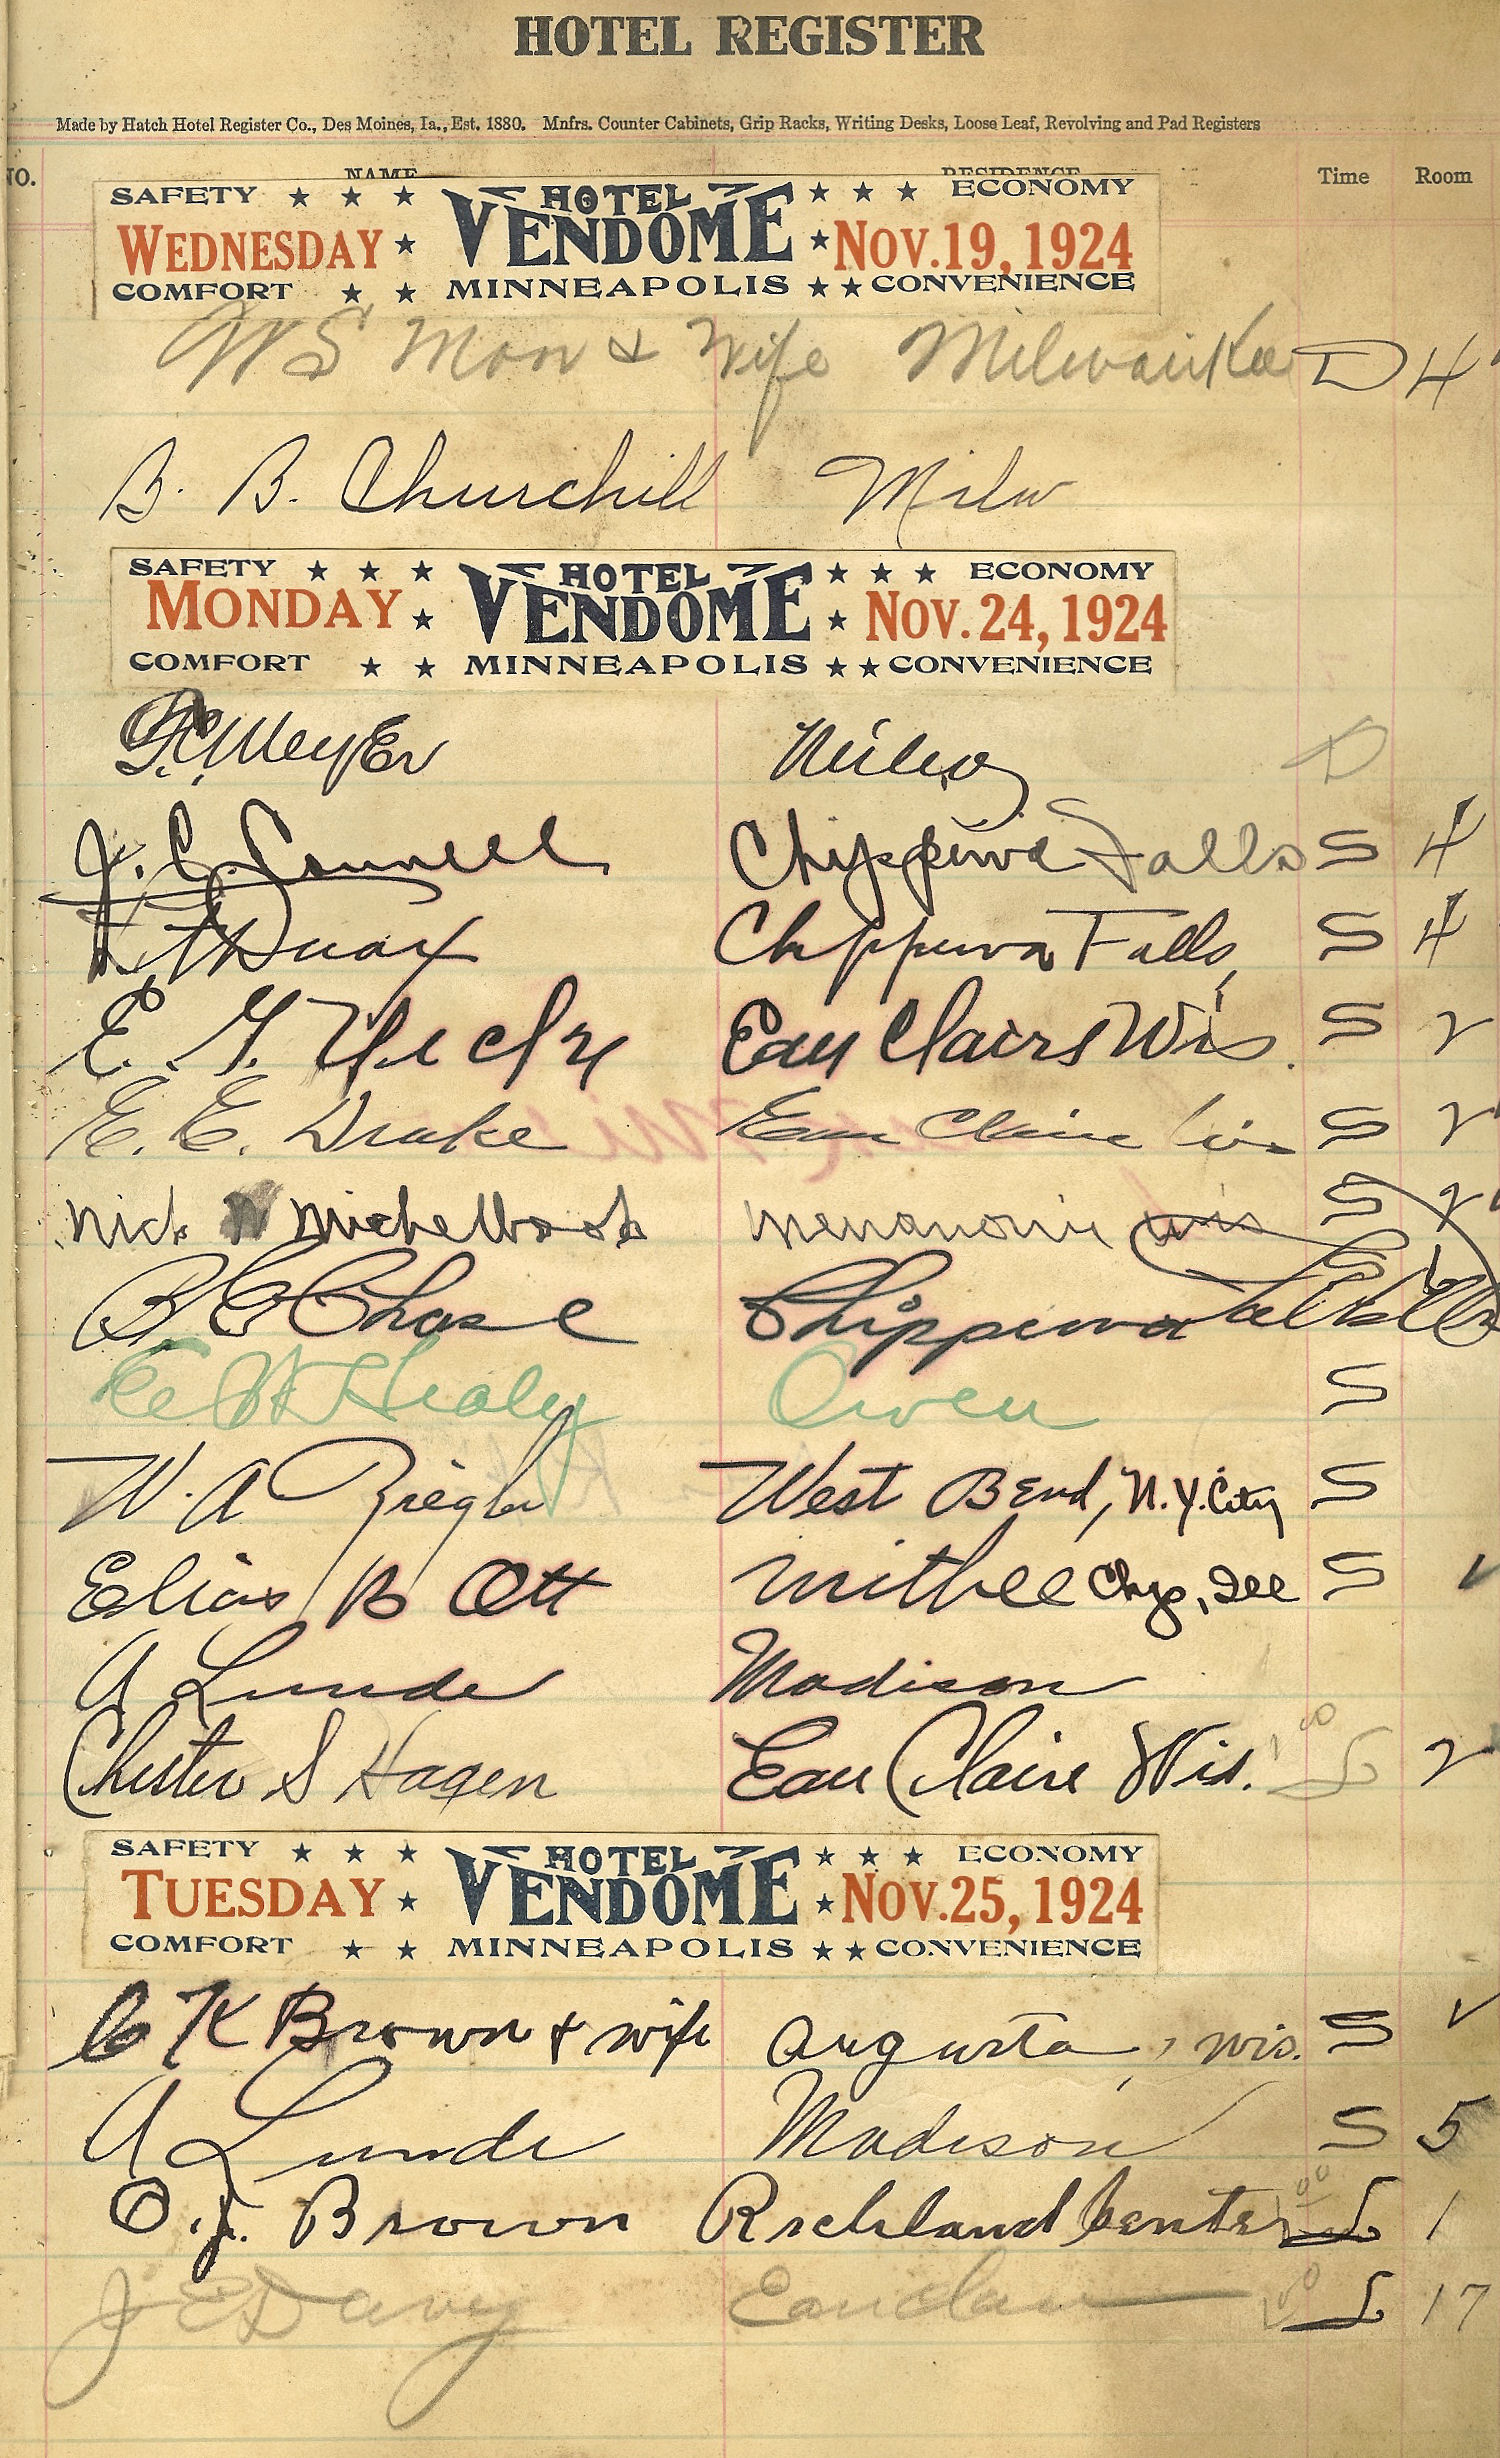 HOTEL REGISTER
Made by Hatch Hotel Register Co., Des Moines, Ia., Est. 1880. Mnfrs. Counter Cabinets, Grip Racks, Writing Desks, Loose Leaf, Revolving and Pad Registers
NO. NAME RESIDENCE Time Room
SAFETY HOTEL ECONOMY
WEDNESDAY VENDOME NOV. 19, 1924
COMFORT MINNEAPOLIS CONVENIENCE
W S Mon & Wife Milwaukee D 4
B. B. Churchill Milw
SAFETY HOTEL ECONOMY
MONDAY VENDOME NOV. 24, 1924
COMFORT MINNEAPOLIS CONVENIENCE
Meyer D
J. C. Connell Chippewa Falls S 4
Duax Chippewa Falls, S 4
E. G. Eau Claire Wis. S 2
E. E. Drake Eau Claire Wis S 2
Nick Menomonie Wis S 2
B E Chase Chippewa Falls
Healy Owen S
W. A Ziegler West Bend, N.Y. City S
Elias B Ott Withee Chgo, Ill S
A Lunde Madison
Chester S Hagen Eau Claire Wis. 2
SAFETY HOTEL ECONOMY
TUESDAY VENDOME NOV. 25, 1924
COMFORT MINNEAPOLIS CONVENIENCE
C K Brown & wife Augusta, Wis. S
A Lunde Madison S 5
O. J. Brown Richland Center 1
J E Davy Eau Claire 17